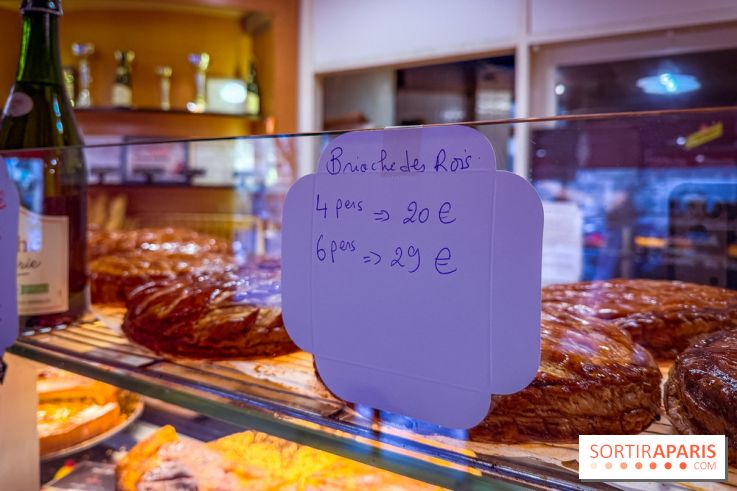 Brioche des Rois.
4 pers => 20 €
6 pers => 29 €
SORTIRAPARIS
.COM